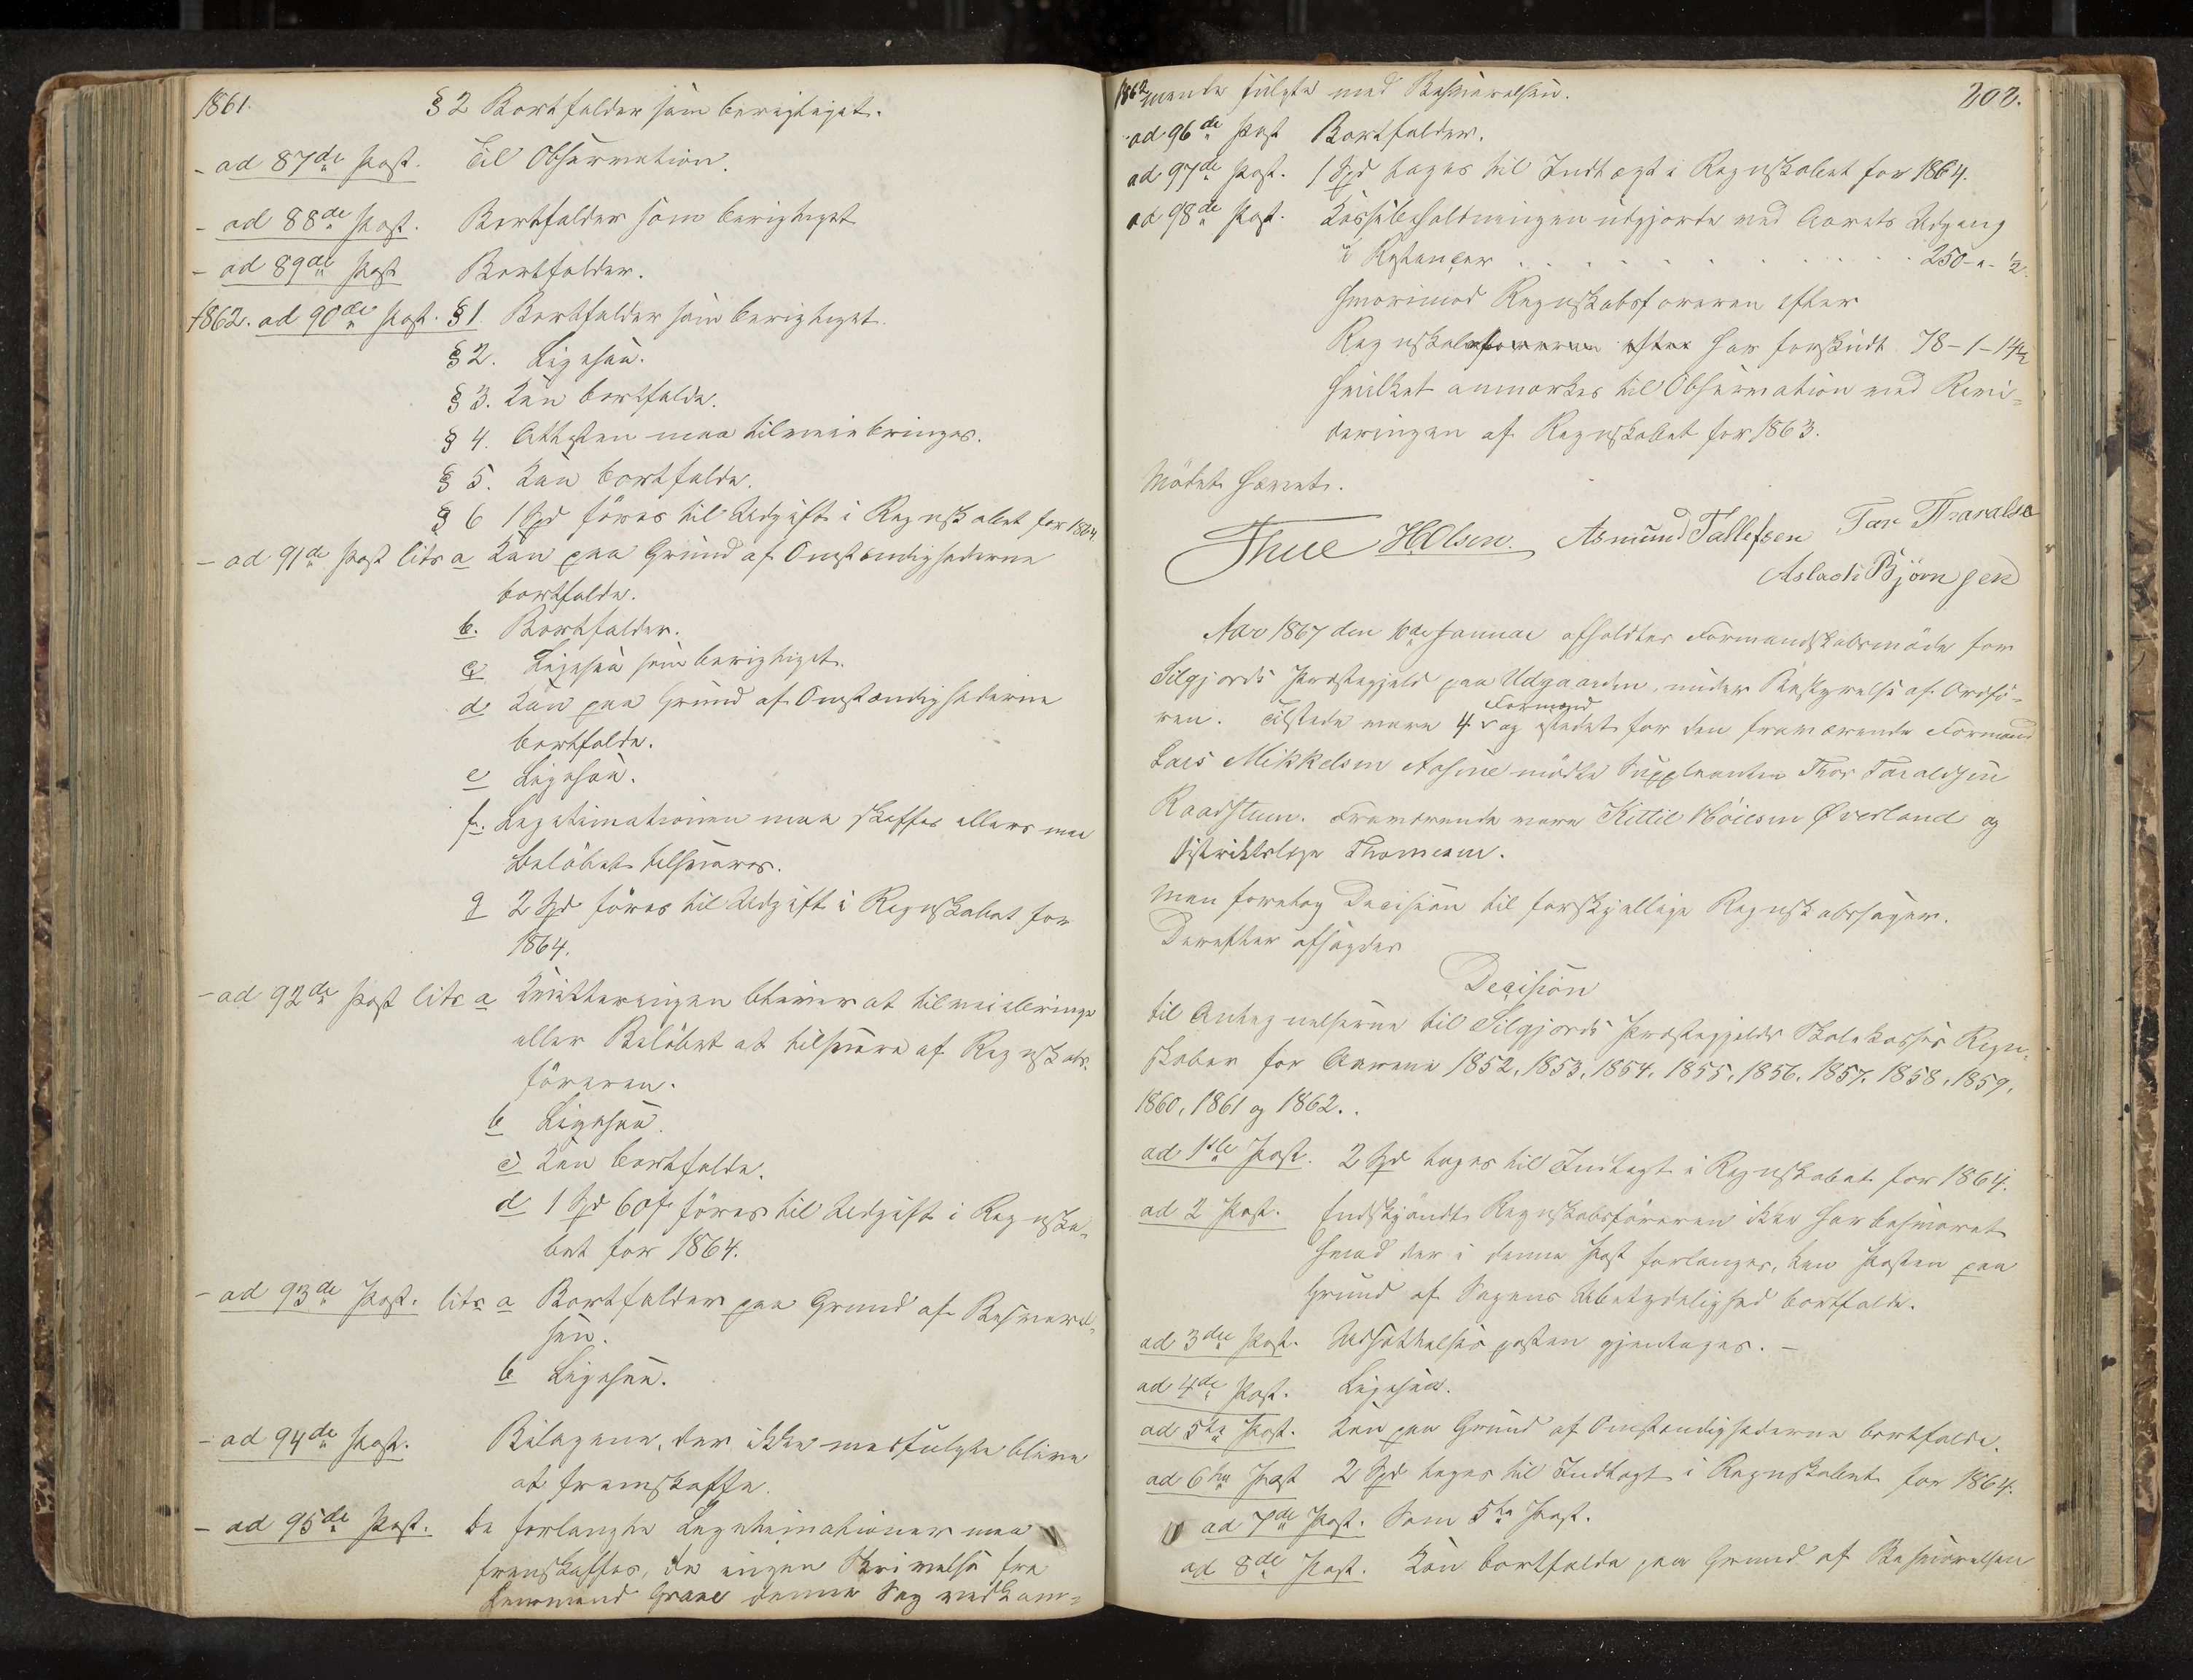 1861. § 2 Bortfalder som berigtiget.
- ad 87de Post. Til Observation.
- ad 88de Post. Bortfalder som berigtiget
- ad 89de Post Bortfalder.
1862. ad 90de Post. § 1. Bortfalder som berigtiget.
§ 2. Ligesaa.
§ 3. Kan bortfalde.
§ 4. Attesten maa tilveiebringes.
§ 5. Kan bortfalde.
§ 6 1 Spd föres til Udgift i Regnskabet for 1864
- ad 91de Post litr a Kan paa Grund af Omstændighederne
bortfalde.
b. Bortfalder.
c Ligesaa som berigtiget.
d Kan paa Grund af Omstændighederne
bortfalde.
e Ligesaa.
f. Legitimationen maa skaffes ellers maa
Belöbet tilsvares.
g 2 Spd föres til Udgift i Regnskabet for
1864.
- ad 92de Post litr a Kvitteringen bliver at tilveiebringe
eller Belöbet at tilsvare af Regnskabs-
föreren.
b Ligesaa.
c Kan bortfalde.
d 1 Spd 60 s föres til Udgift i Regnska-
bet for 1864.
- ad 93de Post. litr a Bortfalder paa Grund af Besvarel-
sen.
b Ligesaa.
- ad 94de Post. Bilagene, der ikke medfulgte blive
at fremskaffe.
- ad 95de Post. De forlangte Legitimationer maa
fremskaffes, da ingen Skrivelse fra
Lensmand Grave denne Sag vedkom-
1862 mende fulgte med Besvarelsen. 202.
ad 96de Post Bortfalder.
ad 97de Post. 1 Spd tages til Indtægt i Regnskabet for 1864.
ad 98de Post. Kassebeholdningen udgjorde ved Aarets Udgang
i Restancer . . . . . . . . . . 250 - " - ½
hvorimod Regnskabsföreren efter
Regnskabsföreren efter har forskudt 78 - 1 - 14½
hvilket anmærkes til Observation ved Revi-
deringen af Regnskabet for 1863.
Mödet hævet.
Thue HOlsen. Asmund Tallefsen Tor Thoralse
Aslach Björnsen
Aar 1867 den 10de Januar afholdtes Formandskabsmöde for
Silgjords Præstegjeld paa Udgaarden, under Bestyrelse af Ordfö-
Formænd
ren. Tilstede vare 4 v og istedet for den fraværende Formand
Lars Mikkelsen mödte Suppleanten Thor Taraldsen
Raadstuen. Fraværende vare Kittil Overland og
Distriktslæge Thomesen.
Man foretog Decision til forskjellige Regnskabssager.
Derefter afsagdes
Decision
til Antegnelserne til Silgjords Præstegjelds Skolekasses Regn-
skaber for Aarene 1852, 1853, 1854, 1855, 1856, 1857, 1858, 1859,
1860, 1861 og 1862.
ad 1ste Post. 2 Spd tages til Indtægt i Regnskabet for 1864.
ad 2 Post. Endskjöndt Regnskabsföreren ikke har besvaret
hvad der i denne Post forlanges, kan Posten paa
Grund af Sagens Ubetydelighed bortfalde.
ad 3die Post. Udsættelsesposten gjentages. -
ad 4de Post. Ligesaa.
ad 5te Post. Kan paa Grund af Omstændighederne bortfalde.
ad 6te Post 2 Spd tages til Indtægt i Regnskabet for 1864.
ad 7de Post. Som 5te Post.
ad 8de Post. Kan bortfalde paa Grund af Besvarelsen